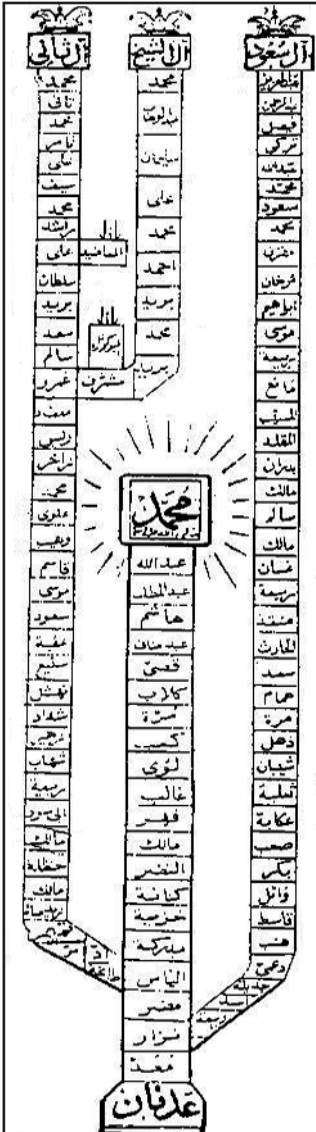 آل سعود
عبدالرحمن
فيصل
تركي
عبدالله
محمد
سعود
محمد
مقرن
فرحان
ابراهيم
موسى
ربيعة
مانع
المسيب
المقلد
بدران
مالك
سالم
مالك
غسان
ربيعة
منقذ
الحارث
سعد
همام
مرة
ذهل
شيبان
ثعلبة
عكابة
صعب
بكر
وائل
قاسط
هنب
دعمي
جديلة
اسد
ربيعة
آل الشيخ
محمد
عبدالوهاب
سليمان
علي
محمد
احمد
بريد
محمد
بريد
مشرف
آل ثاني
محمد
ثاني
محمد
ثامر
علي
سيف
محمد
راشد
علي
المعاضيد
سلطان
بريد
سعد
سالم
عمرو
ريس
زاخر
محمد
علوي
وهيب
قاسم
موسى
سعود
عقبة
سنيع
نهشل
شداد
زهير
شهاب
ربيعة
ابي سود
مالك
حنظلة
مالك
زيد مناة
تميم
مر
اد
طابخة
محمد
عبد الله
عبد المطلب
هاشم
عبد مناف
قصي
كلاب
مرة
كعب
لؤي
غالب
فهر
مالك
النضر
كنانة
خزيمة
مدركة
الياس
مضر
نزار
معد
عدنان